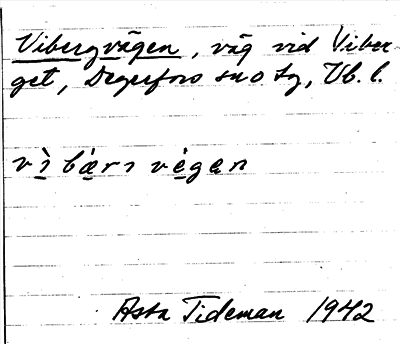 Vibergvägen, väg vid Viber
get, Degerfors sn o tg, Vb. l.
vì bærı vègen
Asta Tideman 1942